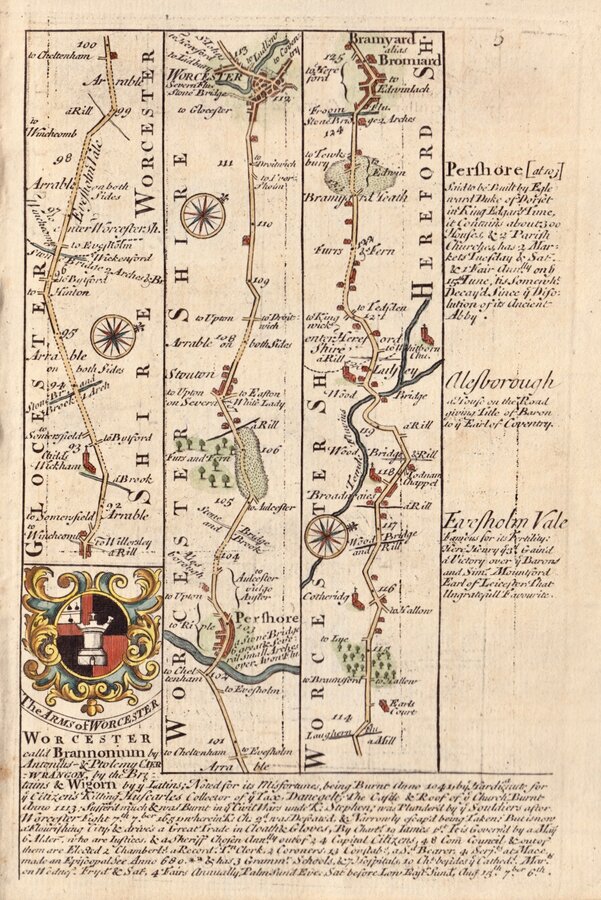 5
100
to Cheltenham
Arrable
99
a Rill
to Winchcomb
98
Arrable
on both
Sides
Evesholm Vale
enter Worcester sh.
to Evesholm
to Wickenford
Bridge 2 Arches & Br
96
to Byford
to Hinton
95
Arrable
on both Sides
94
Stone Br. and
Brook 1 Arch
to Somersfield
to Byford
93
Childs
Wickham
a Brook
92
to Somersfield
Arrable
to Winchcomb
to Willersley
a Rill
GLOCESTER SHIRE
WORCESTER
The ARMS of WORCESTER
113
to Ludlow
WORCESTER
Severn Flu.
Stone Bridge
112
to Glocester
111
to Droitwich
110
109
to Upton
to Droit-
wich
108
Arrable on both Sides
Stouton
to Upton
on Severn
to Easton
White Lady
a Rill
Furs and Fern
106
105
to Aulcester
Stone and
Bridge
Brook
104
to Aulcester
vulgo
Auster
to Upton
to Riple
Pershore
103
a Stone Bridge
6 great & Sev-
ral Small Arches
over Avon Flu.
to Chel-
tenham
102
to Evesholm
101
to Cheltenham
to Evesholm
Arra
ble
WORCESTER SHIRE
Bramyard
alias
Bromiard
125
to Here
ford
to
Edwinlach
Froom
Flu.
Stone Bridge 2 Arches
124
to Tewks
bury
Edwin
Bramyard Heath
Furrs & Fern
to Tedsden
121
to King
wick
enter Hereford
Shire
a Rill
to Whitborn
Chu.
Lulsley
Wood
Bridge
119
a Rill
Wood
Bridge
& Rill
118
Codnam
Chappel
Broadwaies
a Rill
117
Wood
and
Bridge
Rill
116
Cotheridg
to Hallow
to Lye
115
to Bransford
to Hallow
Earls
Court
114
Laughern
Flu.
a Mill
WORCESTER SH
HEREFORD SH
Pershore [at 103]
Said to be Built by Egle
ward Duke of Dorset
in King Edgars Time,
it Contains about 300
Houses, & 2 Parish
Churches, has 2 Mar-
kets Tuesday & Sat.
& 1 Fair Annlly. on ye
15th June, tis Somewht.
Decay'd Since ye Diso-
lution of its Ancient
Abby.
Alesborough
a House on the Road
giving Title of Baron
to ye Earl of Coventry.
Evesholm Vale
Famous for its Fertility;
Here Henry ye 3d. Gain'd
a Victory over ye Barons
and Sim. Mountford
Earl of Leicester That
Ungratefull Favourite.
WORCESTER
call'd Brannonium by
Antonius & Ptolemy CAER
WRANGON, by the Bri-
tains & Wigorn by ye Latins; Noted for its Misfortunes, being Burnt Anno 1041 by Hardicnut, for
ye Citizens Killing Huscarles Collector of ye Tax Danegelt; The Castle & Roof of ye Church Burnt
Anno 1113, Suffer'd much & was Burnt in ye Civil Wars under K. Stephen; was Plunder'd by ye Souldiers after
Worcester Fight 7th 7ber 1651 wherein K. Ch. 2d. was Defeated & Narrowly escap'd being Taken; But is now
a Flourishing City & drives a Great Trade in Cloath & Gloves, By Chartr. 19 James 1st. It is Govern'd by a Maj
6 Alderm. who are Justices, & a Sheriff Chosen Annlly. out of 24 Capital Citizens, 48 Com. Council & out of
them are Elected 2 Chamberls. a Recordr. Tn. Clerk 2 Coroners 13 Constabs. a Sd. Bearer 4 Serjts. at Mace
made an Episcopal See Anno 680. & has 3 Gramr. Schools, & 7 Hospitals, 10 Chs. besides ye Cathedl. Marts.
on Wedns. Fryd. & Sat. 4 Fairs Annually, Palm Sund. Eve, Sat. before Low East. Sund., Aug 15th, 7ber 8th.